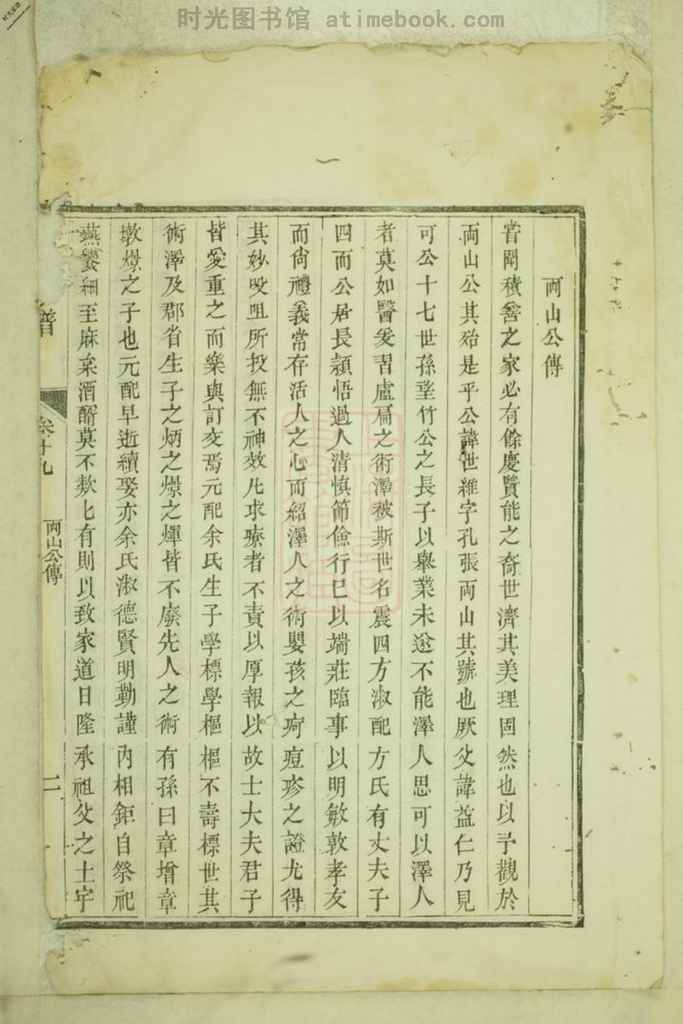 时光图书馆 atimebook.com
兩山公傳
嘗聞積善之家必有餘慶賢能之裔世濟其美理固然也以予觀於
兩山公其殆是乎公諱世維字孔張兩山其號也厥父諱益仁乃見
可公十七世孫筆竹公之長子以舉業未逾不能澤人思可以澤人
者莫如醫爰習盧扁之術澤被斯世名震四方淑配方氏有丈夫子
四而公居長穎悟過人清慎節儉行己以端莊臨事以明敏敦孝友
而尙禮義常存活人之心而紹澤人之術嬰孩之疴痘疹之證尤得
其妙㕮咀所投無不神效凡求療者不責以厚報以故士大夫君子
皆愛重之而樂與訂交焉元配余氏生子學標學樞樞不壽標世其
術澤及郡省生子之炳之燝之煇皆不廢先人之術有孫曰章增章
墩燝之子也元配早逝續娶亦余氏淑德賢明勤謹內相鉅自祭祀
燕饗細至麻枲酒醑莫不欵匕有則以致家道日隆承祖父之土宇
譜
卷十九
兩山公傳
二